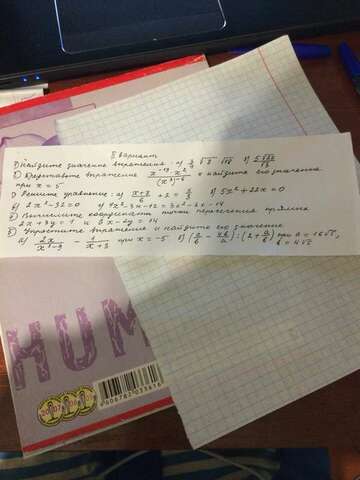 II вариант
1) Найдите значение выражения: а) 3/4 √2 · √18 б) 5√32/√8
2) Представьте выражение x^-13 · x^2/(x^3)^-5 и найдите его значение
при x = 5
3) Решите уравнение: а) x+2/6 + 2 = 2/3 б) 5x² + 22x = 0
в) 2x² - 32 = 0 г) 4x² - 3x - 12 = 3x² - 4x - 14
4) Вычислите координаты точки пересечения прямых
2x + 3y = 1 и 3x - 4y = 14
5) Упростите выражение и найдите его значение
а) 2x/x²-9 - 1/x+3 при x = -5 б) : (2 + a/b) при a = 16√5,
b = 4√5
HUM
4606782033616